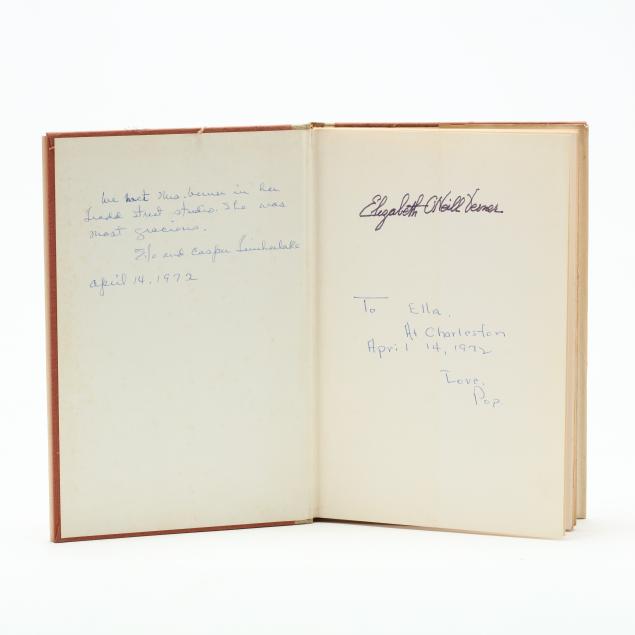 We met Mrs. Verner in her
Tradd Street studio. She was
most gracious.
and Casper Timberlake
April 14, 1972
Elizabeth O'Neill Verner
To Ella.
At Charleston
April 14, 1972
Love,
Pop.